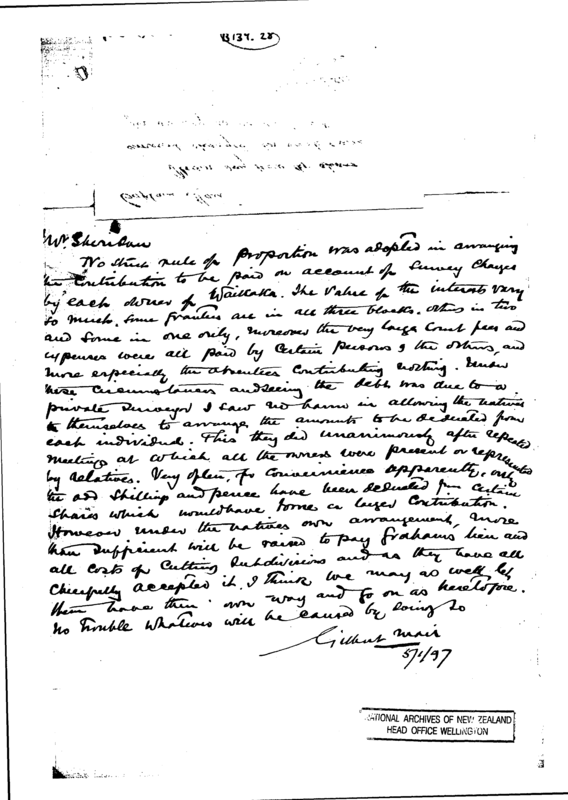 B 134. 28
Captain Mair
Mr Sheridan
No strict rule of proportion was adopted in arranging
the contribution to be paid on account of Survey Charges
by each owner of Waikaka. The value of the interests vary
so much. Some families are in all three blocks. Others in two
and some in one only, moreover the very large Court fees and
expenses were all paid by certain persons & the others, and
more especially the absentees contributing nothing. Under
these circumstances and seeing the debt was due to a
private Surveyor I saw no harm in allowing the natives
themselves to arrange the amounts to be deducted from
each individual. This they did unanimously after repeated
meetings at which all the owners were present or represented
by relatives. Very often, for convenience apparently, only
the odd shillings and pence have been deducted from certain
shares which would have borne a larger contribution.
However under the natives own arrangement, more
than sufficient will be raised to pay Grahams lien and
all costs of cutting subdivisions and as they have all
cheerfully accepted it I think we may as well let
them have their own way and go on as heretofore.
No trouble whatever will be caused by doing so
Gilbert Mair
5/1/97
NATIONAL ARCHIVES OF NEW ZEALAND
HEAD OFFICE WELLINGTON